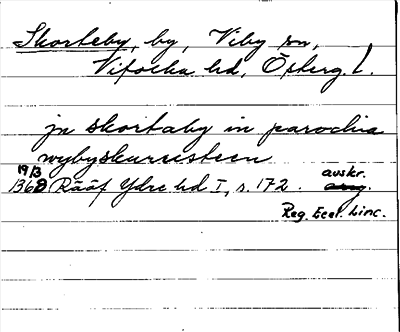 Skorteby, by, Viby sn,
Vifolka hd, Österg. l.
jn skortaby in parochia
wybyskursteen
19/3
1368 Rääf Ydre hd I, s. 172. avskr.
Reg. Eccl. Linc.